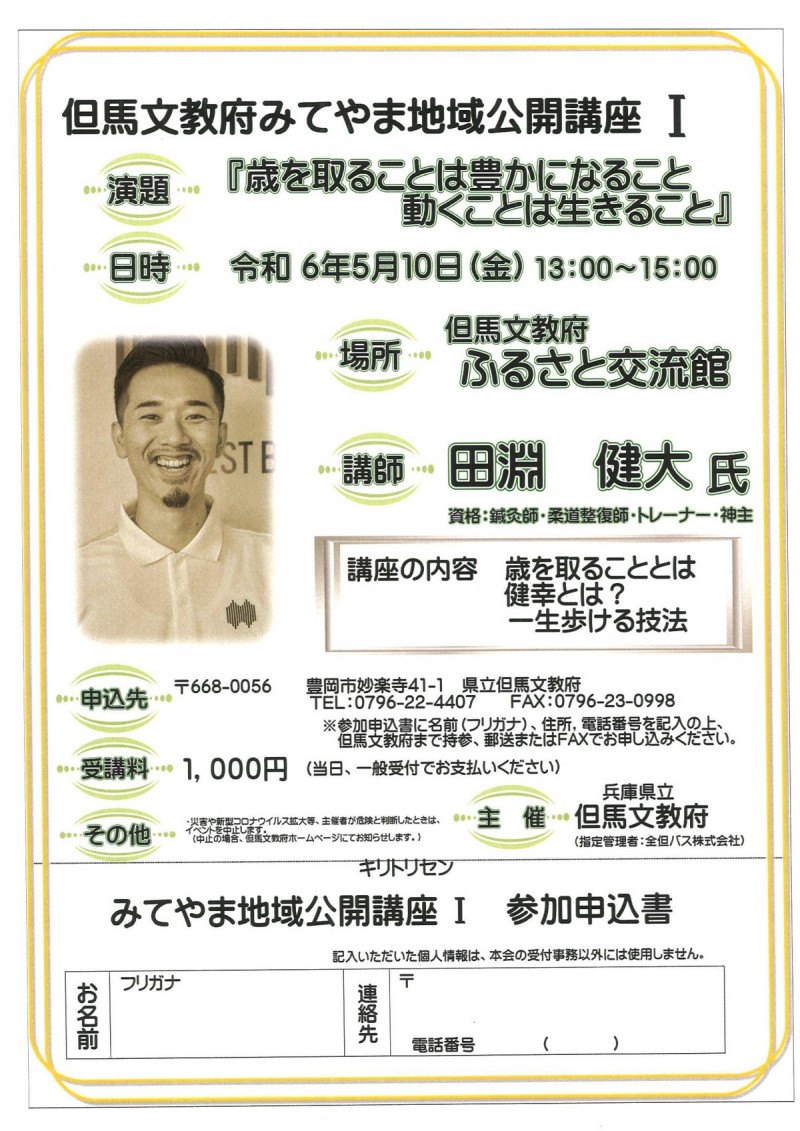 但馬文教府みてやま地域公開講座 Ⅰ
演題
『歳を取ることは豊かになること
動くことは生きること』
日時
令和 6年5月10日(金) 13:00～15:00
場所
但馬文教府
ふるさと交流館
EST B
講師
田淵 健大 氏
資格:鍼灸師・柔道整復師・トレーナー・神主
講座の内容 歳を取ることとは
健幸とは?
一生歩ける技法
申込先
〒668-0056 豊岡市妙楽寺41-1 県立但馬文教府
TEL:0796-22-4407 FAX:0796-23-0998
※参加申込書に名前(フリガナ)、住所,電話番号を記入の上、
但馬文教府まで持参、郵送またはFAXでお申し込みください。
受講料
1,000円 (当日、一般受付でお支払いください)
その他
・災害や新型コロナウイルス拡大等、主催者が危険と判断したときは、
イベントを中止します。
(中止の場合、但馬文教府ホームページにてお知らせします。)
主 催
兵庫県立
但馬文教府
(指定管理者:全但バス株式会社)
キリトリセン
みてやま地域公開講座 Ⅰ 参加申込書
記入いただいた個人情報は、本会の受付事務以外には使用しません。
お名前
フリガナ
連絡先
〒
電話番号 ( )